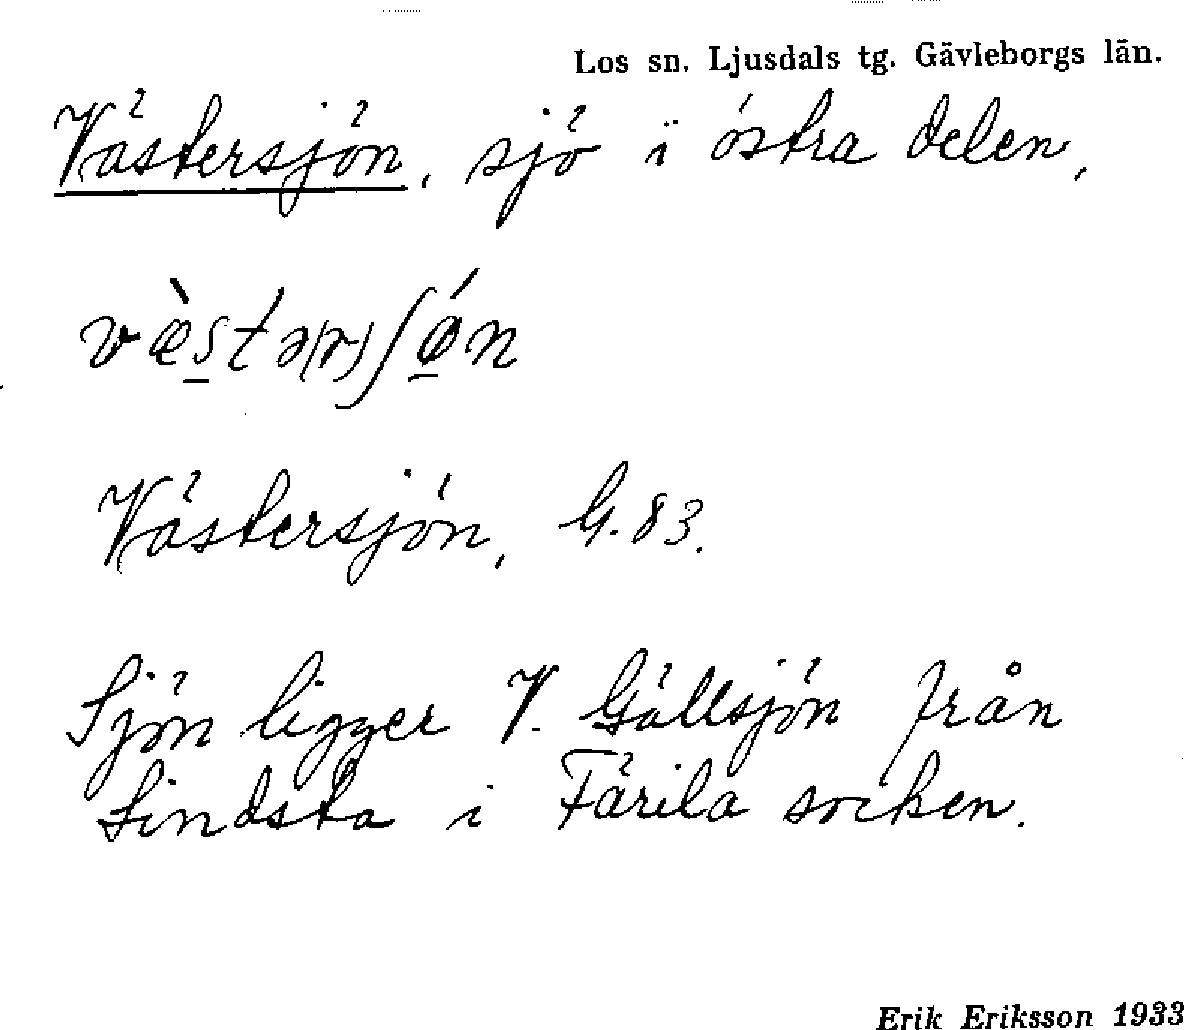 Los sn. Ljusdals tg. Gävleborgs län.
Västersjön, sjö i östra delen,
væ̀stə(r)ʃǿn
Västersjön, G. 83.
Sjön ligger V. Gällsjön från
Lindsta i Färila socken.
Erik Eriksson 1933